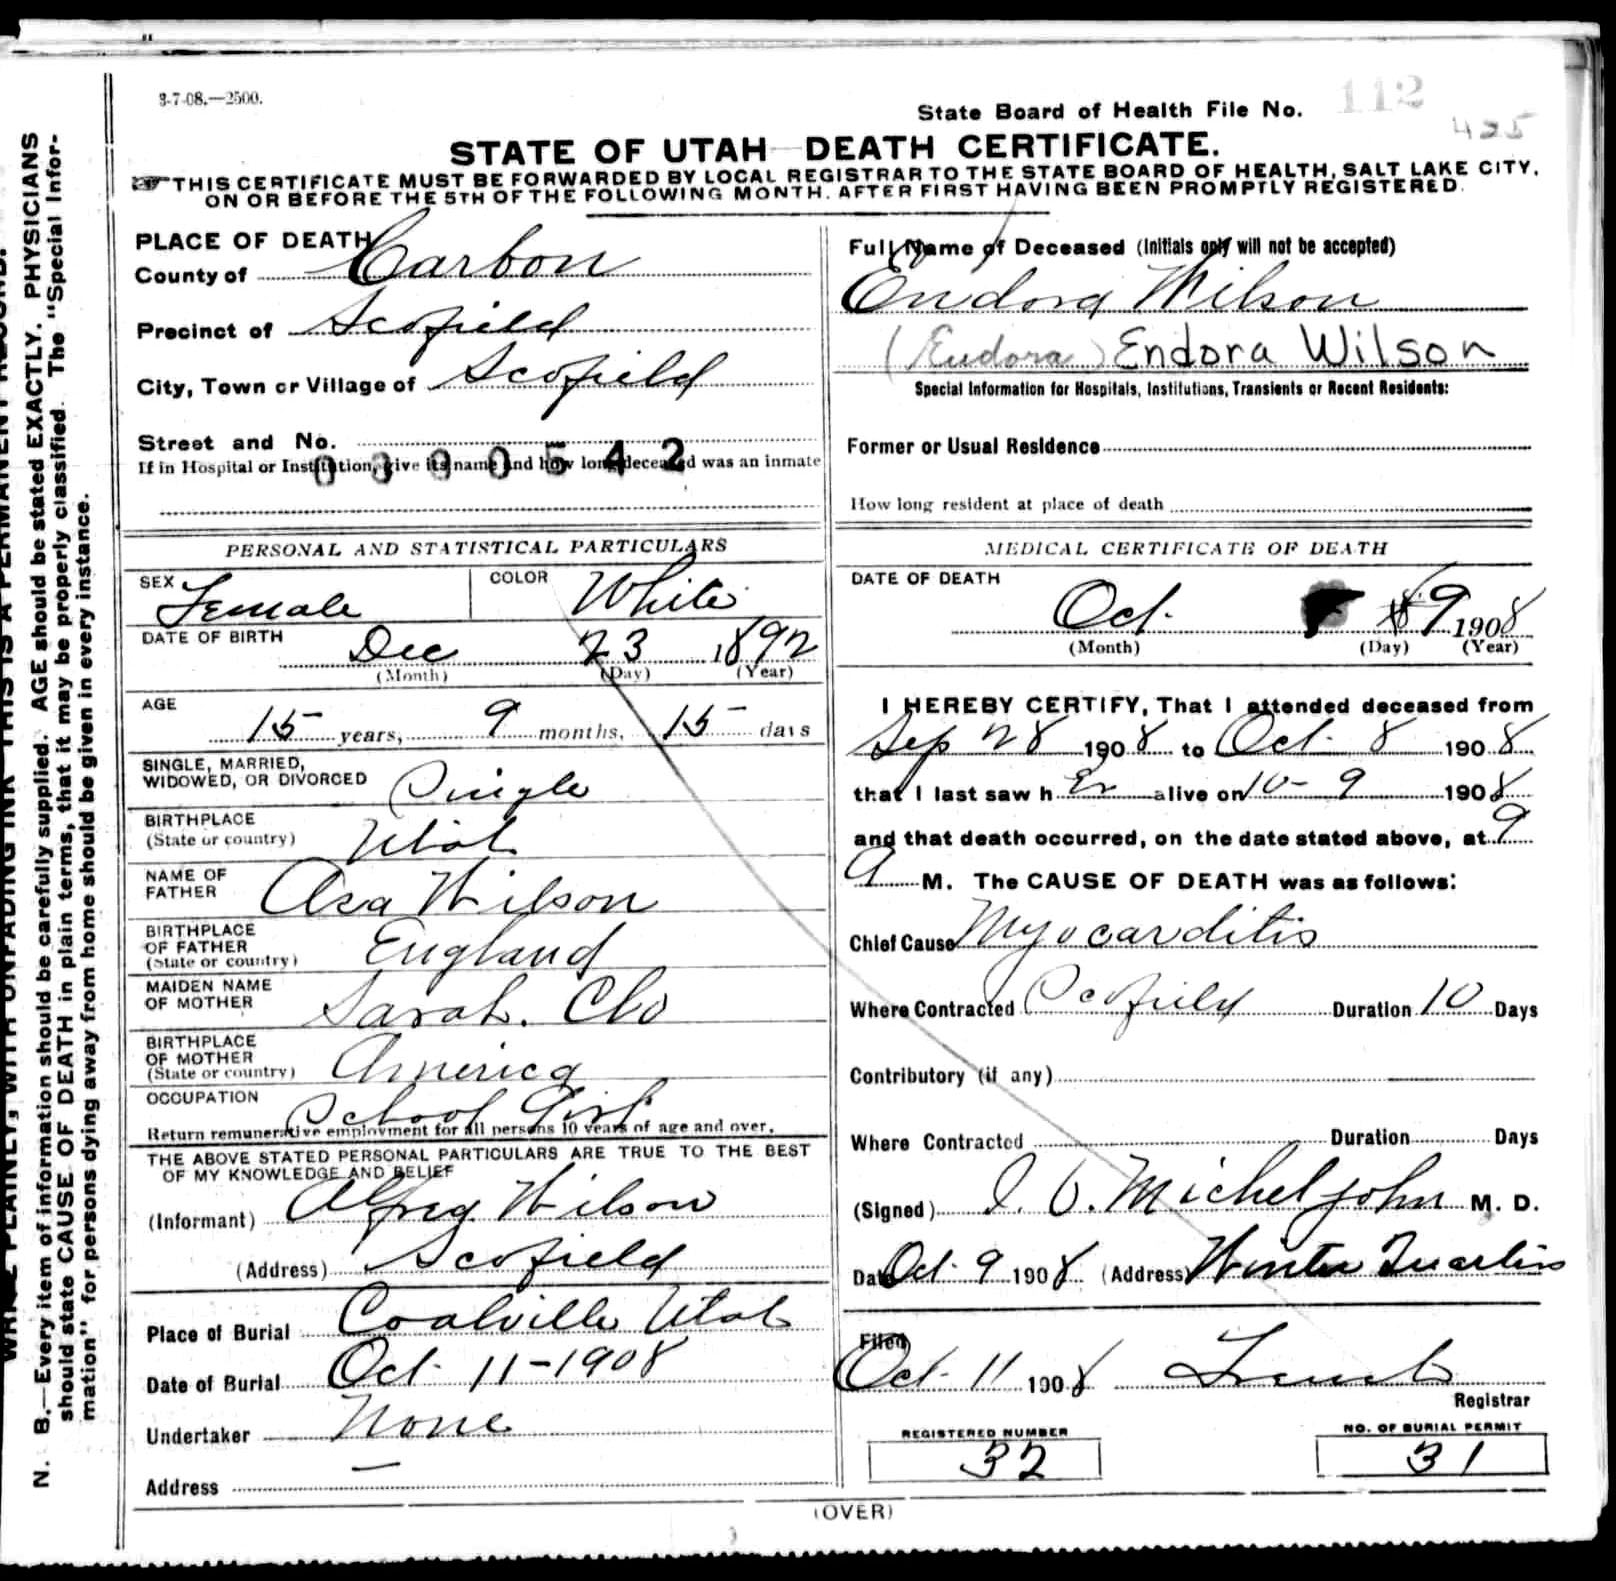 3-7-08.—2500.
State Board of Health File No. 112
425
STATE OF UTAH—DEATH CERTIFICATE.
THIS CERTIFICATE MUST BE FORWARDED BY LOCAL REGISTRAR TO THE STATE BOARD OF HEALTH, SALT LAKE CITY,
ON OR BEFORE THE 5TH OF THE FOLLOWING MONTH. AFTER FIRST HAVING BEEN PROMPTLY REGISTERED.
PLACE OF DEATH
County of Carbon
Precinct of Scofield
City, Town or Village of Scofield
Street and No.
0390542
If in Hospital or Institution, give its name and how long deceased was an inmate
Full Name of Deceased (Initials only will not be accepted)
Endora Wilson
(Eudora) Endora Wilson
Special Information for Hospitals, Institutions, Transients or Recent Residents:
Former or Usual Residence
How long resident at place of death
PERSONAL AND STATISTICAL PARTICULARS
SEX Female COLOR White
DATE OF BIRTH Dec 23 1892
(Month) (Day) (Year)
AGE
15 years, 9 months, 15 days
SINGLE, MARRIED,
WIDOWED, OR DIVORCED Single
BIRTHPLACE
(State or country) Utah
NAME OF
FATHER Asa Wilson
BIRTHPLACE
OF FATHER
(State or country) England
MAIDEN NAME
OF MOTHER Sarah. Clo
BIRTHPLACE
OF MOTHER
(State or country) America
OCCUPATION School Girl
Return remunerative employment for all persons 10 years of age and over.
THE ABOVE STATED PERSONAL PARTICULARS ARE TRUE TO THE BEST
OF MY KNOWLEDGE AND BELIEF
(Informant) Alfred Wilson
(Address) Scofield
Place of Burial Coalville Utah
Date of Burial Oct. 11-1908
Undertaker None
Address —
MEDICAL CERTIFICATE OF DEATH
DATE OF DEATH
Oct. 9 1908
(Month) (Day) (Year)
I HEREBY CERTIFY, That I attended deceased from
Sep 28 1908 to Oct. 8 1908
that I last saw h Er alive on 10-9 1908
and that death occurred, on the date stated above, at 9
A M. The CAUSE OF DEATH was as follows:
Chief Cause Myocarditis
Where Contracted Scofield Duration 10 Days
Contributory (if any)
Where Contracted Duration Days
(Signed) J. O. Micheljohn M. D.
Date Oct. 9 1908 (Address) Winter Quarters
Filed
Oct. 11 1908
Registrar
REGISTERED NUMBER
32
NO. OF BURIAL PERMIT
31
(OVER)
WRITE PLAINLY, WITH UNFADING INK—THIS IS A PERMANENT RECORD.
N. B.—Every item of information should be carefully supplied. AGE should be stated EXACTLY. PHYSICIANS
should state CAUSE OF DEATH in plain terms, that it may be properly classified. The "Special Infor-
mation" for persons dying away from home should be given in every instance.